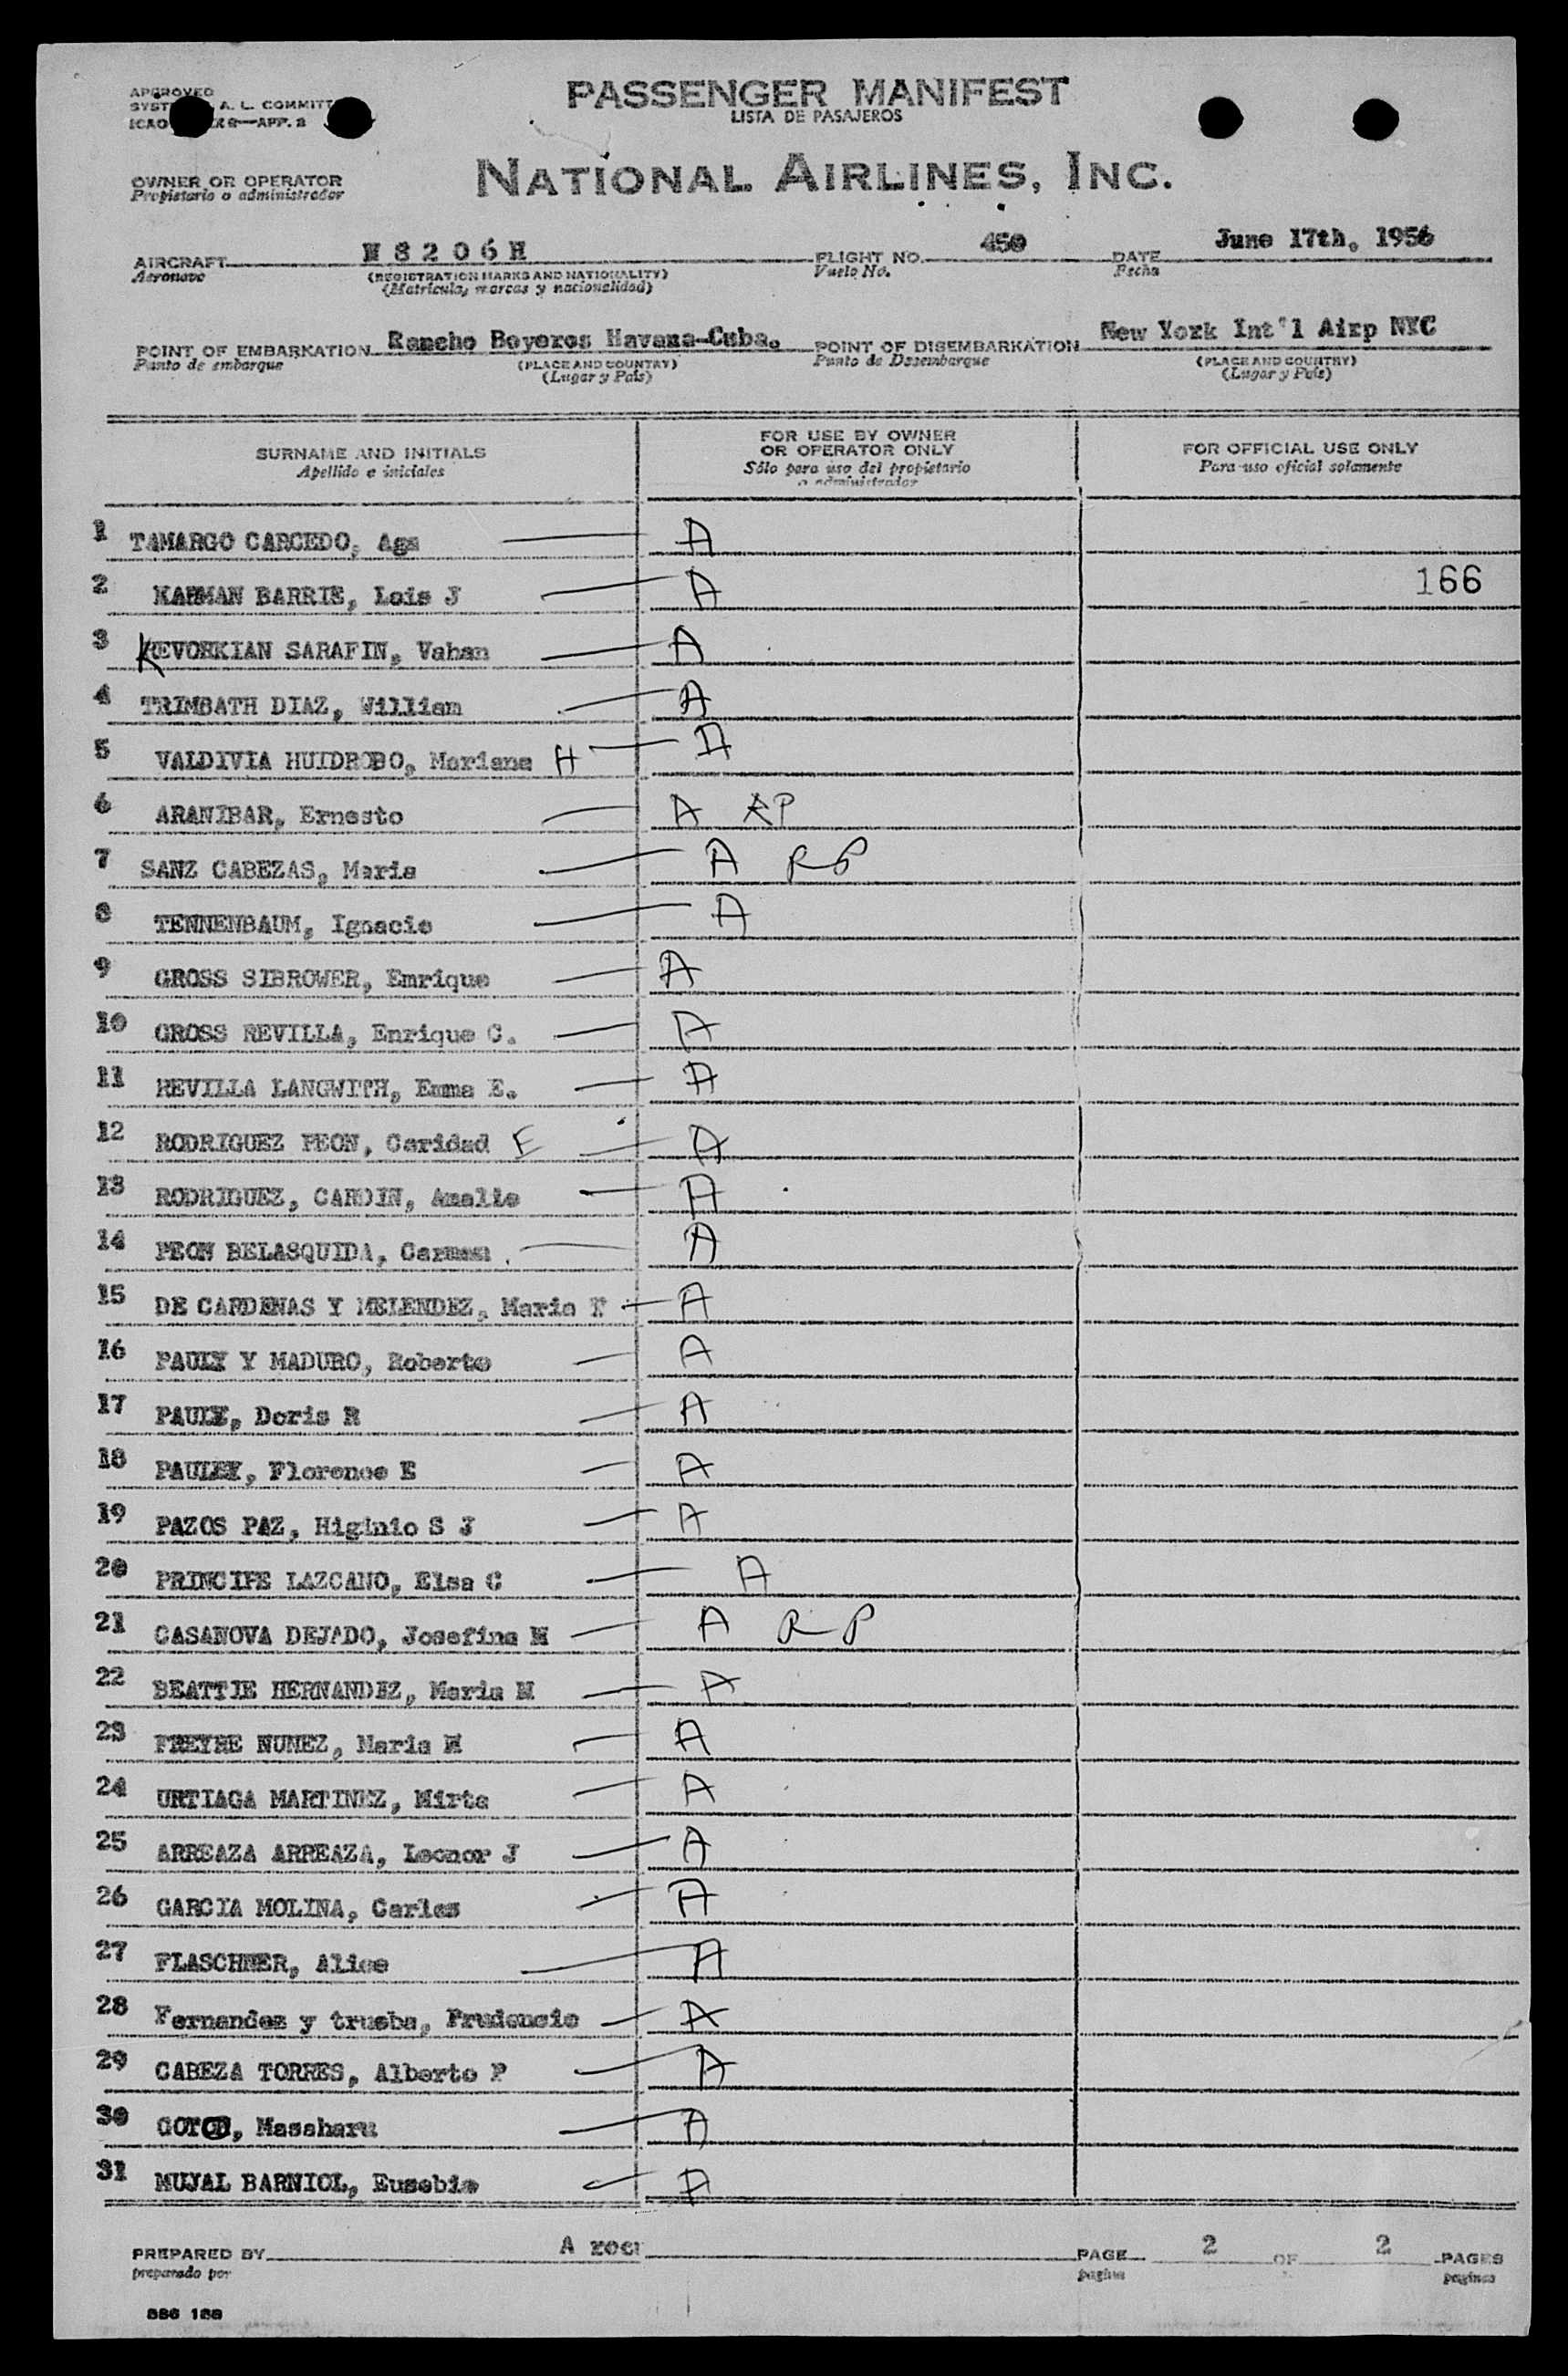 APPROVED
PASSENGER MANIFEST
LISTA DE PASAJEROS
A. L. COMMITT
ICAO APP. 2
OWNER OR OPERATOR
Propietario o administrador
NATIONAL AIRLINES, INC.
AIRCRAFT N 8 2 0 6 H FLIGHT NO. 450 DATE June 17th, 1956
Aeronave (REGISTRATION MARKS AND NATIONALITY) Vuelo No. Fecha
(Matricula, marcas y nacionalidad)
POINT OF EMBARKATION Rancho Boyeros Havana-Cuba. POINT OF DISEMBARKATION New York Int'l Airp NYC
Punto de embarque (PLACE AND COUNTRY) Punto de Desembarque (PLACE AND COUNTRY)
(Lugar y País) (Lugar y País)
SURNAME AND INITIALS FOR USE BY OWNER OR OPERATOR ONLY FOR OFFICIAL USE ONLY
Apellido e iniciales Sólo para uso del propietario o administrador Para uso oficial solamente
1 TAMARGO CARCEDO, A
2 BARRIE, Lois J A 166
3 KEVORKIAN SARAFIN, Vahan A
4 TRIMBATH DIAZ, William A
5 VALDIVIA HUIDROBO, Mariana H A
6 ARANIBAR, Ernesto A RP
7 SANZ CABEZAS, Maria A RP
8 TENNENBAUM, Ignacio A
9 GROSS SIBROWER, Enrique A
10 GROSS REVILLA, Enrique C. A
11 REVILLA LANGWITH, Emma E. A
12 RODRIGUEZ PEON, Caridad E A
13 RODRIGUEZ, CARDIN, Amalia A
14 PEON BELASQUIDA, Carmen A
15 DE CARDENAS Y MELENDEZ, Maria A
16 PAULY Y MADURO, Roberto A
17 Doris R A
18 Florence E A
19 PAZOS PAZ, Higinio S J A
20 PRINCIPE LAZCANO, Elsa C A
21 CASANOVA DEJADO, Josefina M A RP
22 BEATTIE HERNANDEZ, Maria M A
23 FREYRE NUNEZ, Maria M A
24 URTIAGA MARTINEZ, Mirta A
25 ARREAZA ARREAZA, Leonor J A
26 GARCIA MOLINA, Carlos A
27 FLASCHNER, Alice A
28 Fernandez y trueba, Prudencio A
29 CABEZA TORRES, Alberto P A
30 Masaharu A
31 MUJAL BARNIOL, Eusebio A
PREPARED BY PAGE 2 OF 2 PAGES
preparado por pagina paginas